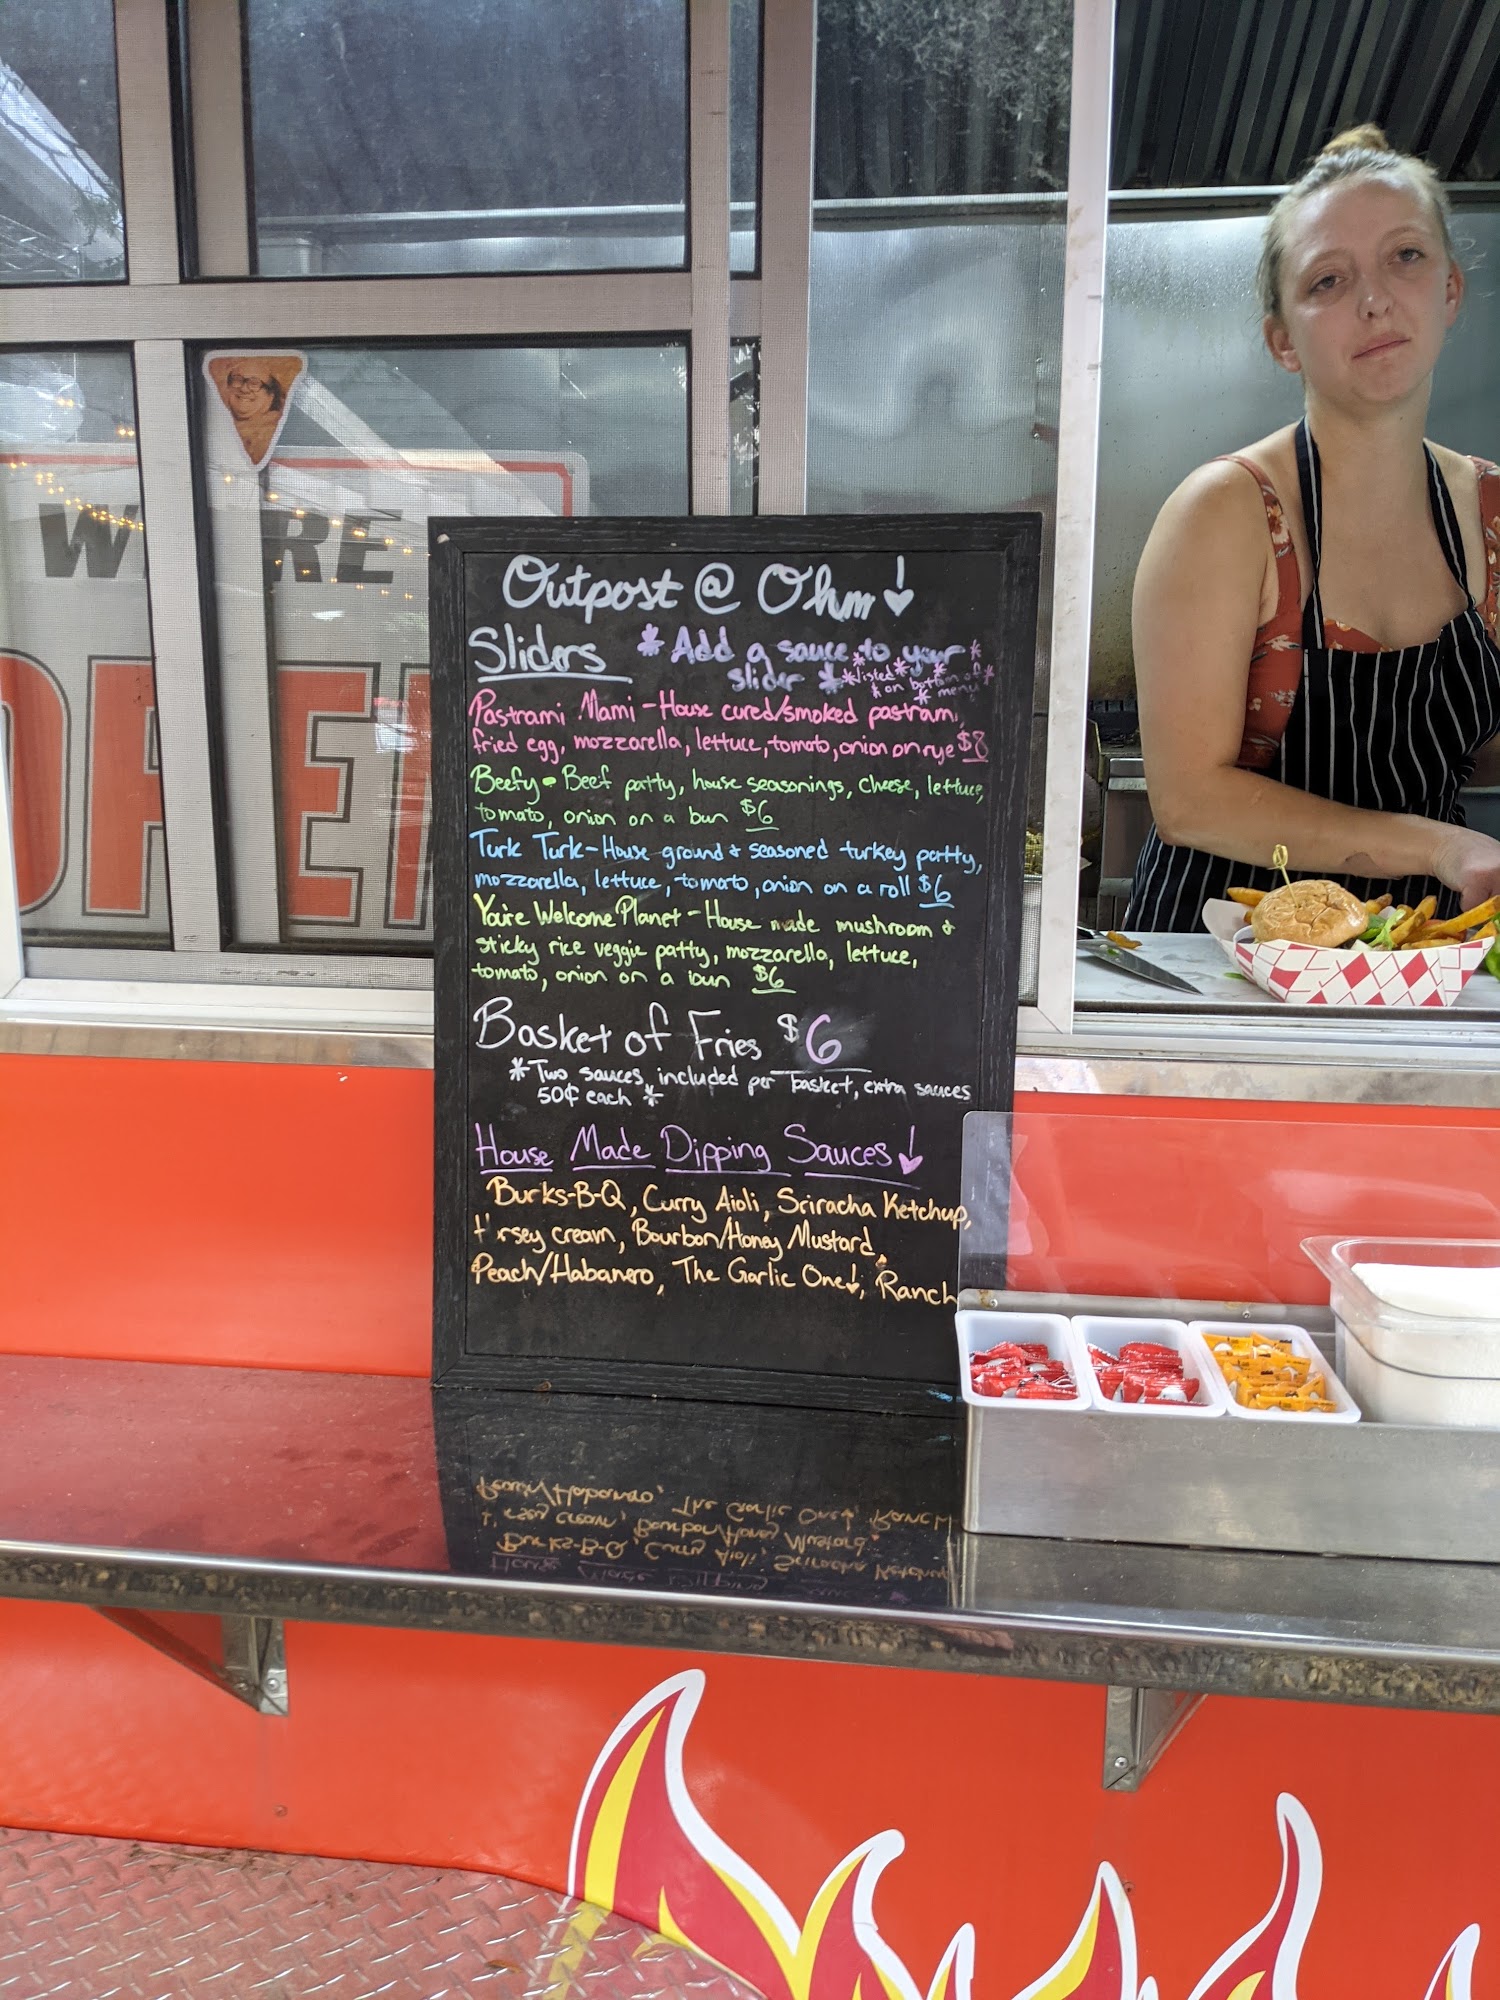 WE'RE
OPEN
Outpost @ Ohm!
Sliders *Add a sauce to your
slider * *listed*
on bottom of
* menu*
Pastrami Mami - House cured/smoked pastrami,
fried egg, mozzarella, lettuce, tomato, onion on rye $8
Beefy - Beef patty, house seasonings, cheese, lettuce,
tomato, onion on a bun $6
Turk Turk - House ground & seasoned turkey patty,
mozzarella, lettuce, tomato, onion on a roll $6
You're Welcome Planet - House made mushroom &
sticky rice veggie patty, mozzarella, lettuce,
tomato, onion on a bun $6
Basket of Fries $6
*Two sauces included per basket, extra sauces
50¢ each *
House Made Dipping Sauces!
Burks-B-Q, Curry Aioli, Sriracha Ketchup,
cream, Bourbon/Honey Mustard,
Peach/Habanero, The Garlic One!, Ranch